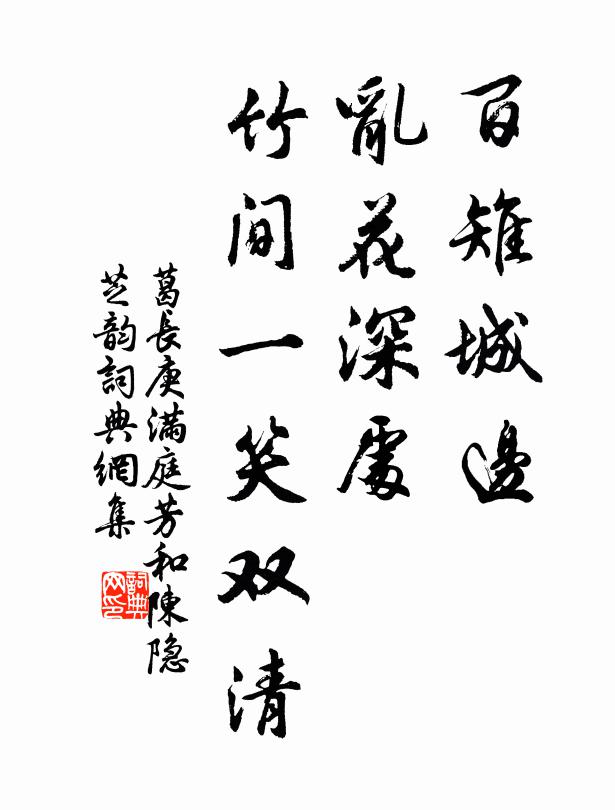 百雉城邊
亂花深處
竹间一笑双清
葛長庚满庭芳和陳隐
芝韵詞典網集
詞典
网印